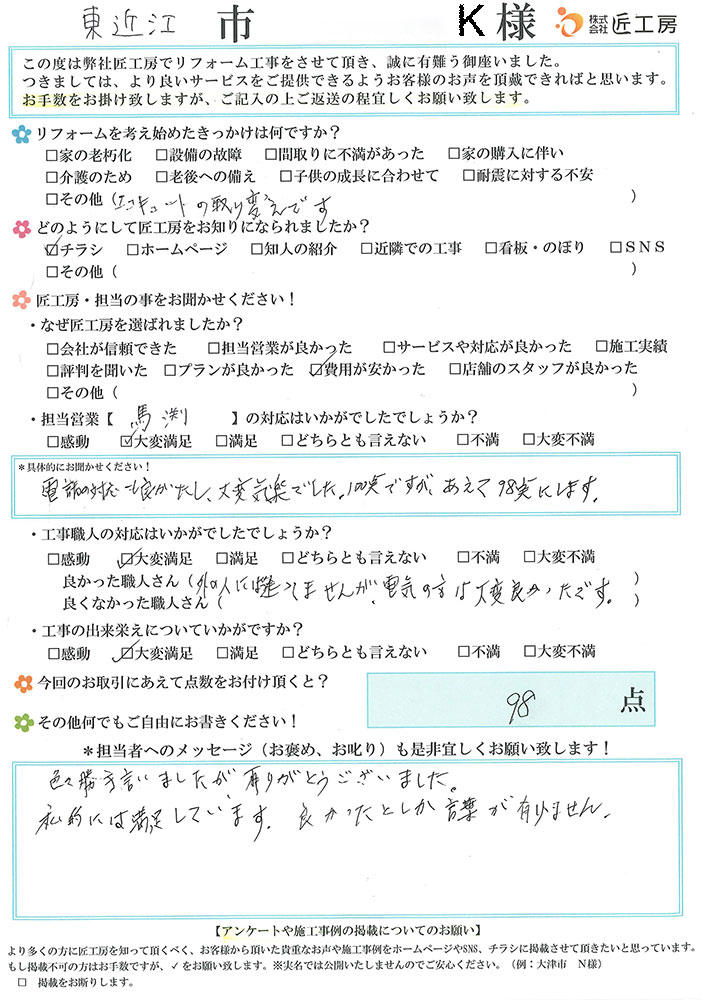 東近江 市 K 様 株式会社 匠工房
この度は弊社匠工房でリフォーム工事をさせて頂き、誠に有難う御座いました。
つきましては、より良いサービスをご提供できるようお客様のお声を頂戴できればと思います。
お手数をお掛け致しますが、ご記入の上ご返送の程宜しくお願い致します。
リフォームを考え始めたきっかけは何ですか？
□家の老朽化 □設備の故障 □間取りに不満があった □家の購入に伴い
□介護のため □老後への備え □子供の成長に合わせて □耐震に対する不安
□その他（エコキュートの取り変えです ）
どのようにして匠工房をお知りになられましたか？
☑チラシ □ホームページ □知人の紹介 □近隣での工事 □看板・のぼり □ＳＮＳ
□その他（ ）
匠工房・担当の事をお聞かせください！
・なぜ匠工房を選ばれましたか？
□会社が信頼できた □担当営業が良かった □サービスや対応が良かった □施工実績
□評判を聞いた □プランが良かった ☑費用が安かった □店舗のスタッフが良かった
□その他（ ）
・担当営業【 馬渕 】の対応はいかがでしたでしょうか？
□感動 ☑大変満足 □満足 □どちらとも言えない □不満 □大変不満
＊具体的にお聞かせください！
電話の対応も良かたし、大変気楽でした。100点ですが、あえて98点にします。
・工事職人の対応はいかがでしたでしょうか？
□感動 ☑大変満足 □満足 □どちらとも言えない □不満 □大変不満
良かった職人さん（外の人には逢ってませんが、電気の方は大変良かったです。 ）
良くなかった職人さん（ ）
・工事の出来栄えについていかがですか？
□感動 ☑大変満足 □満足 □どちらとも言えない □不満 □大変不満
今回のお取引にあえて点数をお付け頂くと？ 98 点
その他何でもご自由にお書きください！
＊担当者へのメッセージ（お褒め、お叱り）も是非宜しくお願い致します！
色々勝手言いましたが有りがとうございました。
私的には満足しています。良かったとしか言葉が有りません。
【アンケートや施工事例の掲載についてのお願い】
より多くの方に匠工房を知って頂くべく、お客様から頂いた貴重なお声や施工事例をホームページやSNS、チラシに掲載させて頂きたいと思っています。
もし掲載不可の方はお手数ですが、✓をお願い致します。※実名では公開いたしませんのでご安心ください。（例：大津市 N様）
□ 掲載をお断りします。